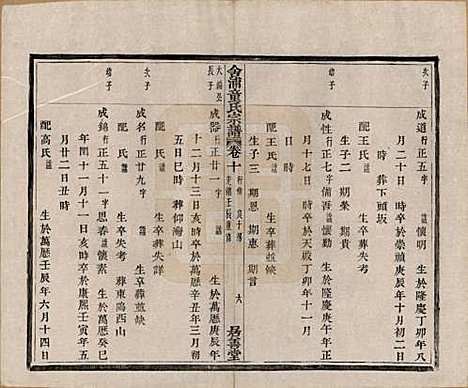 次子
成道 行正五字 諱明 生於隆慶丁卯年八
月二十日 時卒於崇禎庚辰年十月初二日
時葬下頭坂
配王氏 諱 生卒葬失考
生子二 期榮 期貴
幼子
成性 行正七字吾 諱懷勤 生於隆慶庚午年正
月十七日 時卒於天啟丁卯年十一月
日 時
配王氏 諱 生卒葬並缺
生子三 期恩 期惠 期言
合浦童氏宗譜 卷十 六 居善堂
大綸公長子
成器 行正廿 諱 生於萬曆庚辰年
十二月十三日亥時卒於萬曆辛丑年三月初
五日巳時 葬仰海山
配 氏 諱 生卒葬失詳
次子
成名 行正廿九字 諱 生卒葬並缺
配 氏 諱 生卒失考 葬東隅西山
幼子
成錦 行正五十一字思春 諱懷素 生於萬曆癸巳
年閏十一月十一日亥時卒於康熙壬寅年五
月廿二日丑時
配高氏 諱 生於萬曆壬辰年六月十四日